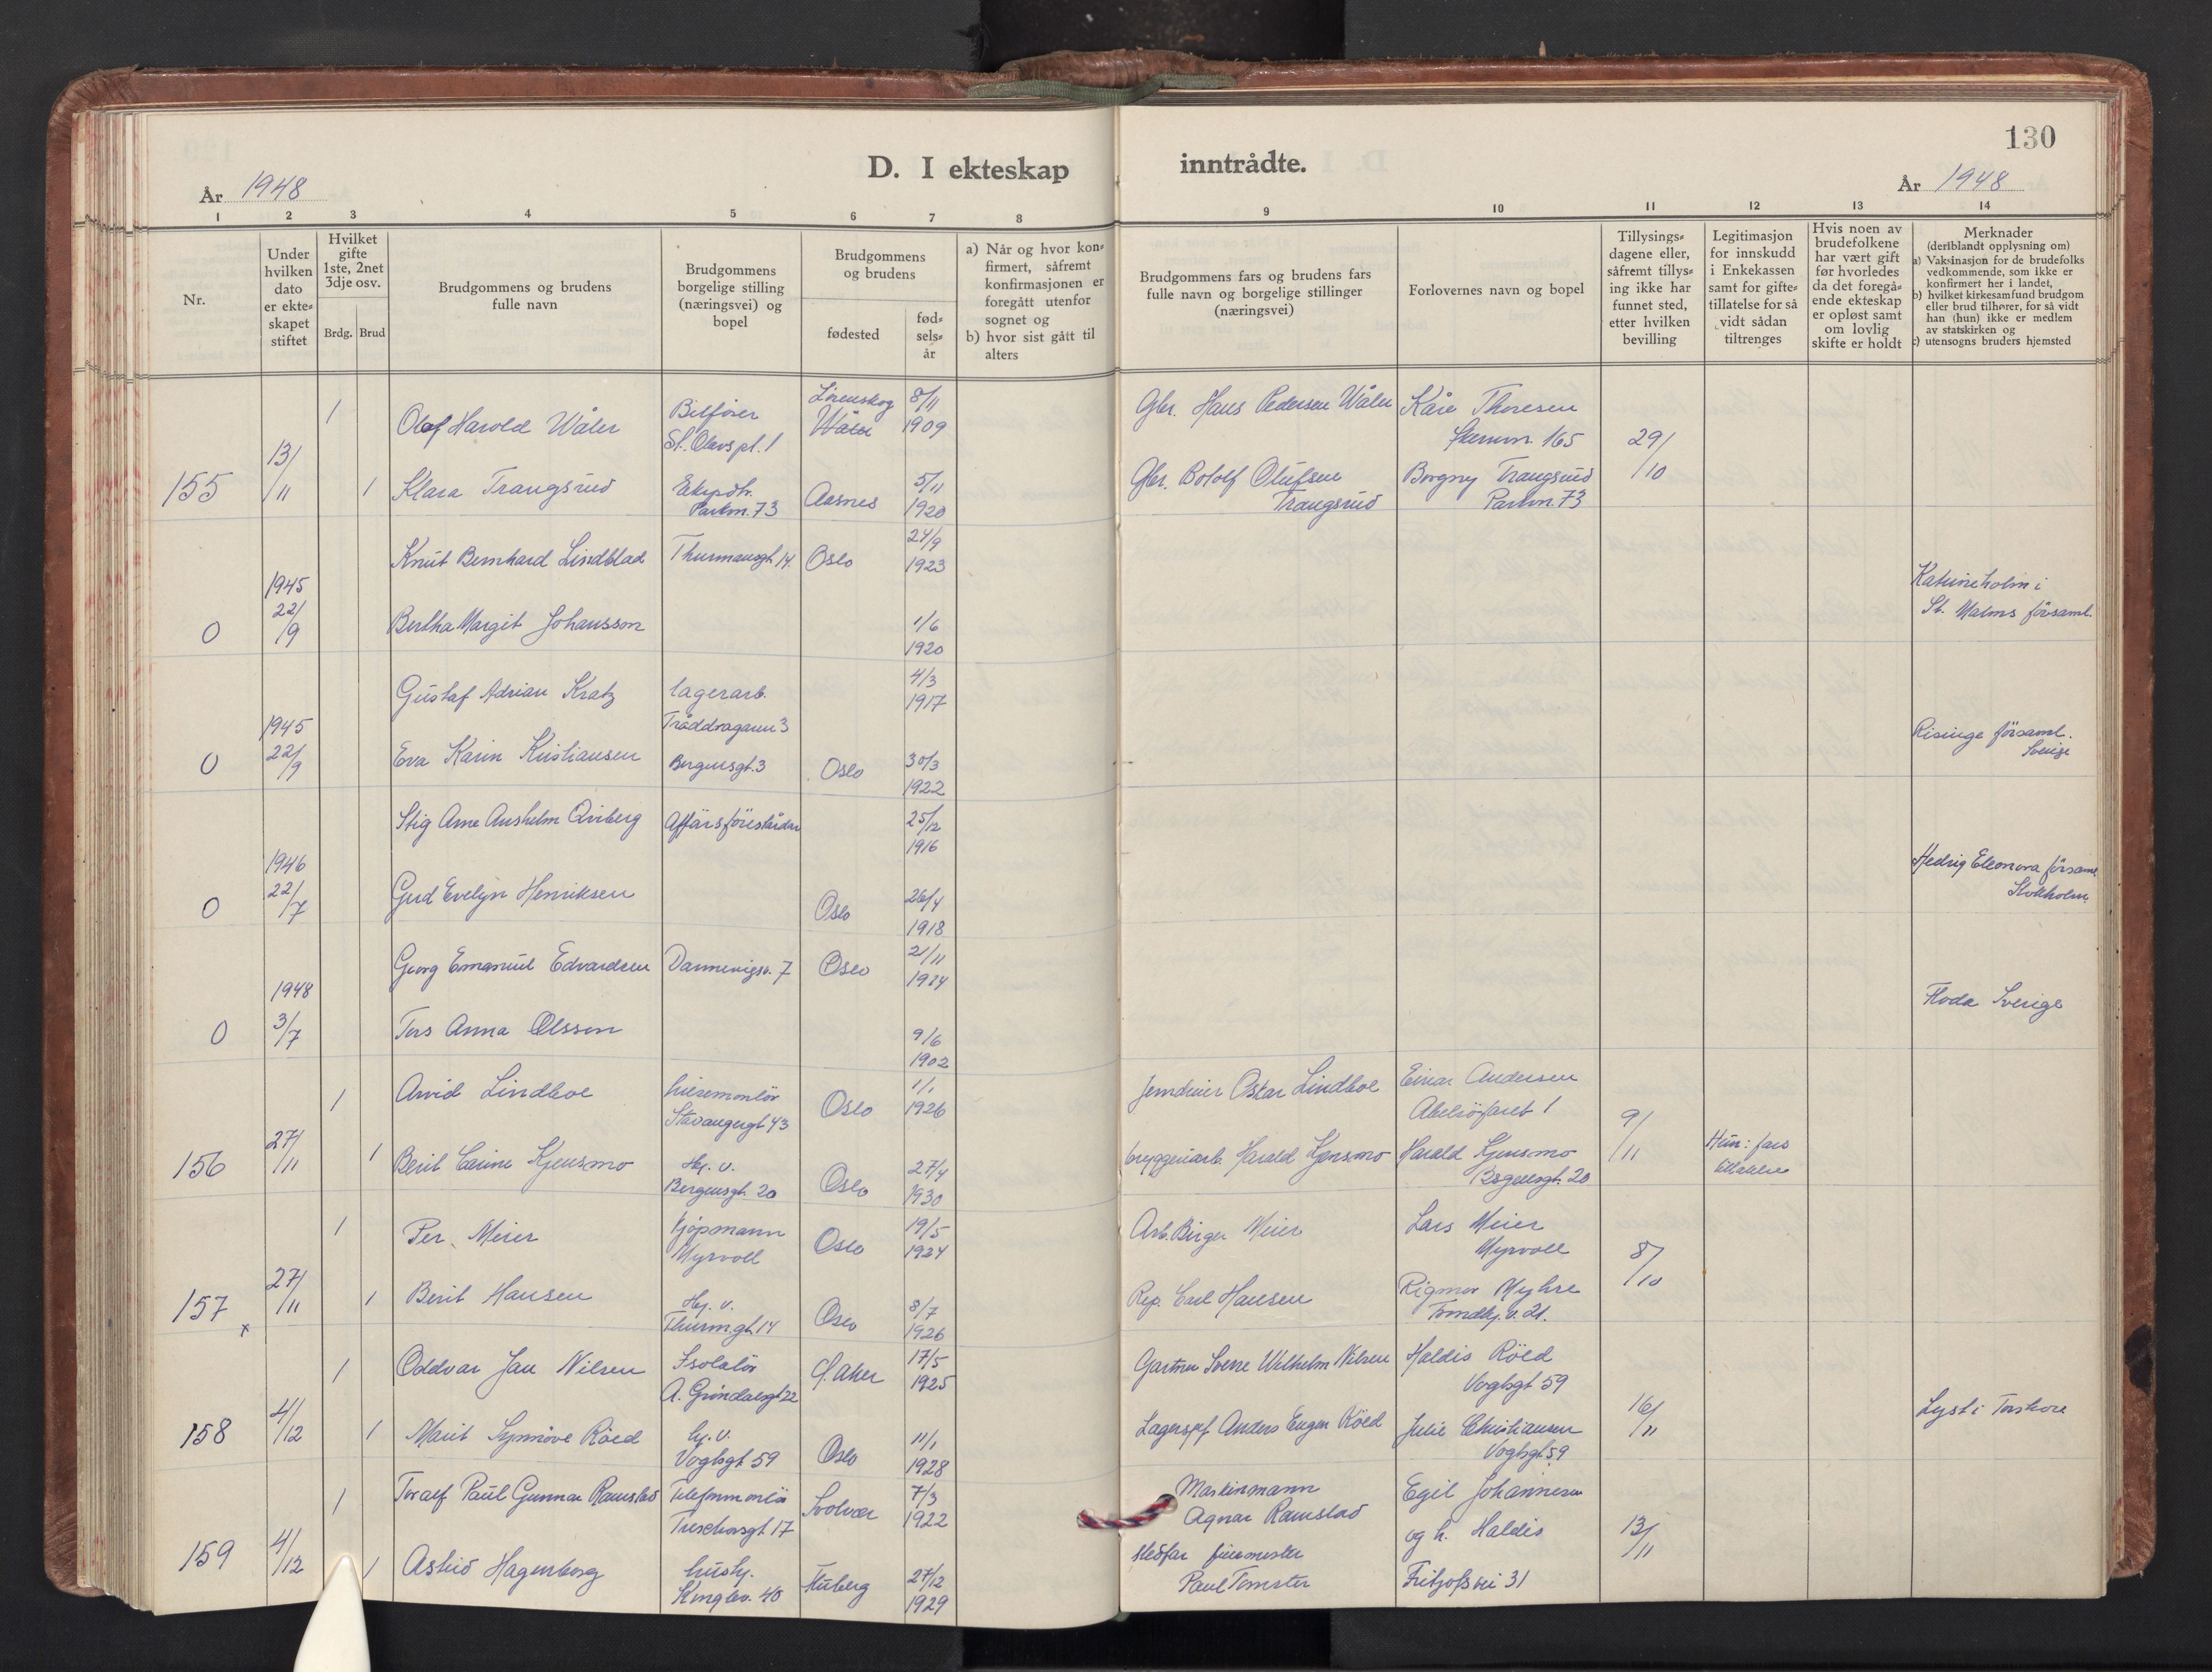 130
D. I ekteskap inntrådte.
År 1948
År 1948
1 2 3 4 5 6 7 8 9 10 11 12 13 14
Nr.
Under
hvilken
dato
er ekte=
skapet
stiftet
Hvilket
gifte
1ste, 2net
3dje osv.
Brdg. Brud
Brudgommens og brudens
fulle navn
Brudgommens
borgelige stilling
(næringsvei) og
bopel
Brudgommens
og brudens
fødested
fød=
sels=
år
a) Når og hvor kon=
firmert, såfremt
konfirmasjonen er
foregått utenfor
sognet og
b) hvor sist gått til
alters
Brudgommens fars og brudens fars
fulle navn og borgelige stillinger
(næringsvei)
Forlovernes navn og bopel
Tillysings=
dagene eller,
såfremt tillys=
ing ikke har
funnet sted,
etter hvilken
bevilling
Legitimasjon
for innskudd
i Enkekassen
samt for gifte=
tillatelse for så
vidt sådan
tiltrenges
Hvis noen av
brudefolkene
har vært gift
før hvorledes
da det foregå=
ende ekteskap
er opløst samt
om lovlig
skifte er holdt
Merknader
(deriblandt opplysning om)
a) Vaksinasjon for de brudefolks
vedkommende, som ikke er
konfirmert her i landet,
b) hvilket kirkesamfund brudgom
eller brud tilhører, for så vidt
han (hun) ikke er medlem
av statskirken og
c) utensogns bruders hjemsted
155 13/11
1 Olaf Harold Wåler Bilfører St. Olavs pl. 1 Lørenskog Wåler 8/11 1909 Gbr. Hans Pedersen Wåler Kåre Thoresen 165 29/10
1 Klara Trangsrud Parkvn. 73 Aasnes 5/11 1920 Gbr. Botolf Olufsen Trangsrud Borgny Trangsrud Parkvn. 73
0 1945 22/9
Knut Bernhard Lindblad Thurmannsgt 14. Oslo 24/9 1923 Katrineholm i
Bertha Margit Johansson 1/6 1920 St. Malms församl.
0 1945 22/9
Gustaf Adrian Kratz lagerarb. Tråddragarn 3 4/3 1917 Risinge församl.
Eva Karin Kristiansen Bergensgt. 3 Oslo 30/3 1922 Sverige
0 1946 22/7
Stig Arne Anshelm Qviberg Affärsföreståndar 25/12 1916 Hedvig Eleonora församl
Gud Evelyn Henriksen Oslo 26/4 1918 Stokholm.
0 1948 3/7
Georg Emanuel Edvardsen Dannevigsv. 7 Oslo 21/11 1914 Floda Sverige
Ters Anna Olsson 9/6 1902
156 27/11
1 Arvid Lindboe Stavangergt 43 Oslo 1/1 1926 Jerndreier Oskar Lindboe Einar Andersen 1 9/11
1 Berit Carine Kjensmo Hj. v. Bergensgt. 20 Oslo 27/4 1930 bryggeriarb. Harald Kjensmo Harald Kjensmo Bergensgt. 20 Hun: fars tillatelse
157 x 27/11
1 Per Meier kjøpmann Myrvoll Oslo 19/5 1924 Arb. Birger Meier Lars Meier Myrvoll 8/10
1 Berit Hansen Hj. v. Thurm.gt. 14 Oslo 8/7 1926 Rep. Carl Hansen Rigmor Myhre Trondhj. v. 21.
158 4/12
1 Oddvar Jan Nilsen Isolatør A. Grøndalsgt 22 Ø. Aker 17/5 1925 Gartner Sverre Wilhelm Nilsen Haldis Röed Vogtsgt 59 16/11
1 Marit Synnöve Röed hj. v. Vogtsgt 59 Oslo 11/1 1928 Lagersjef Anders Eugen Röed Julie Christiansen Vogtsgt 59 Lyst i Torshov
159 4/12
1 Toralf Paul Gunnar Ramstad Telefonmontör Treschowsgt 17 Svolvær 7/3 1922 Maskinmann Agnar Ramstad Egil Johannesen og h. Haldis Fritjofsvei 31 13/11
1 Astrid Hagenborg hush. 40 27/12 1929 stedfar Paul Tomster